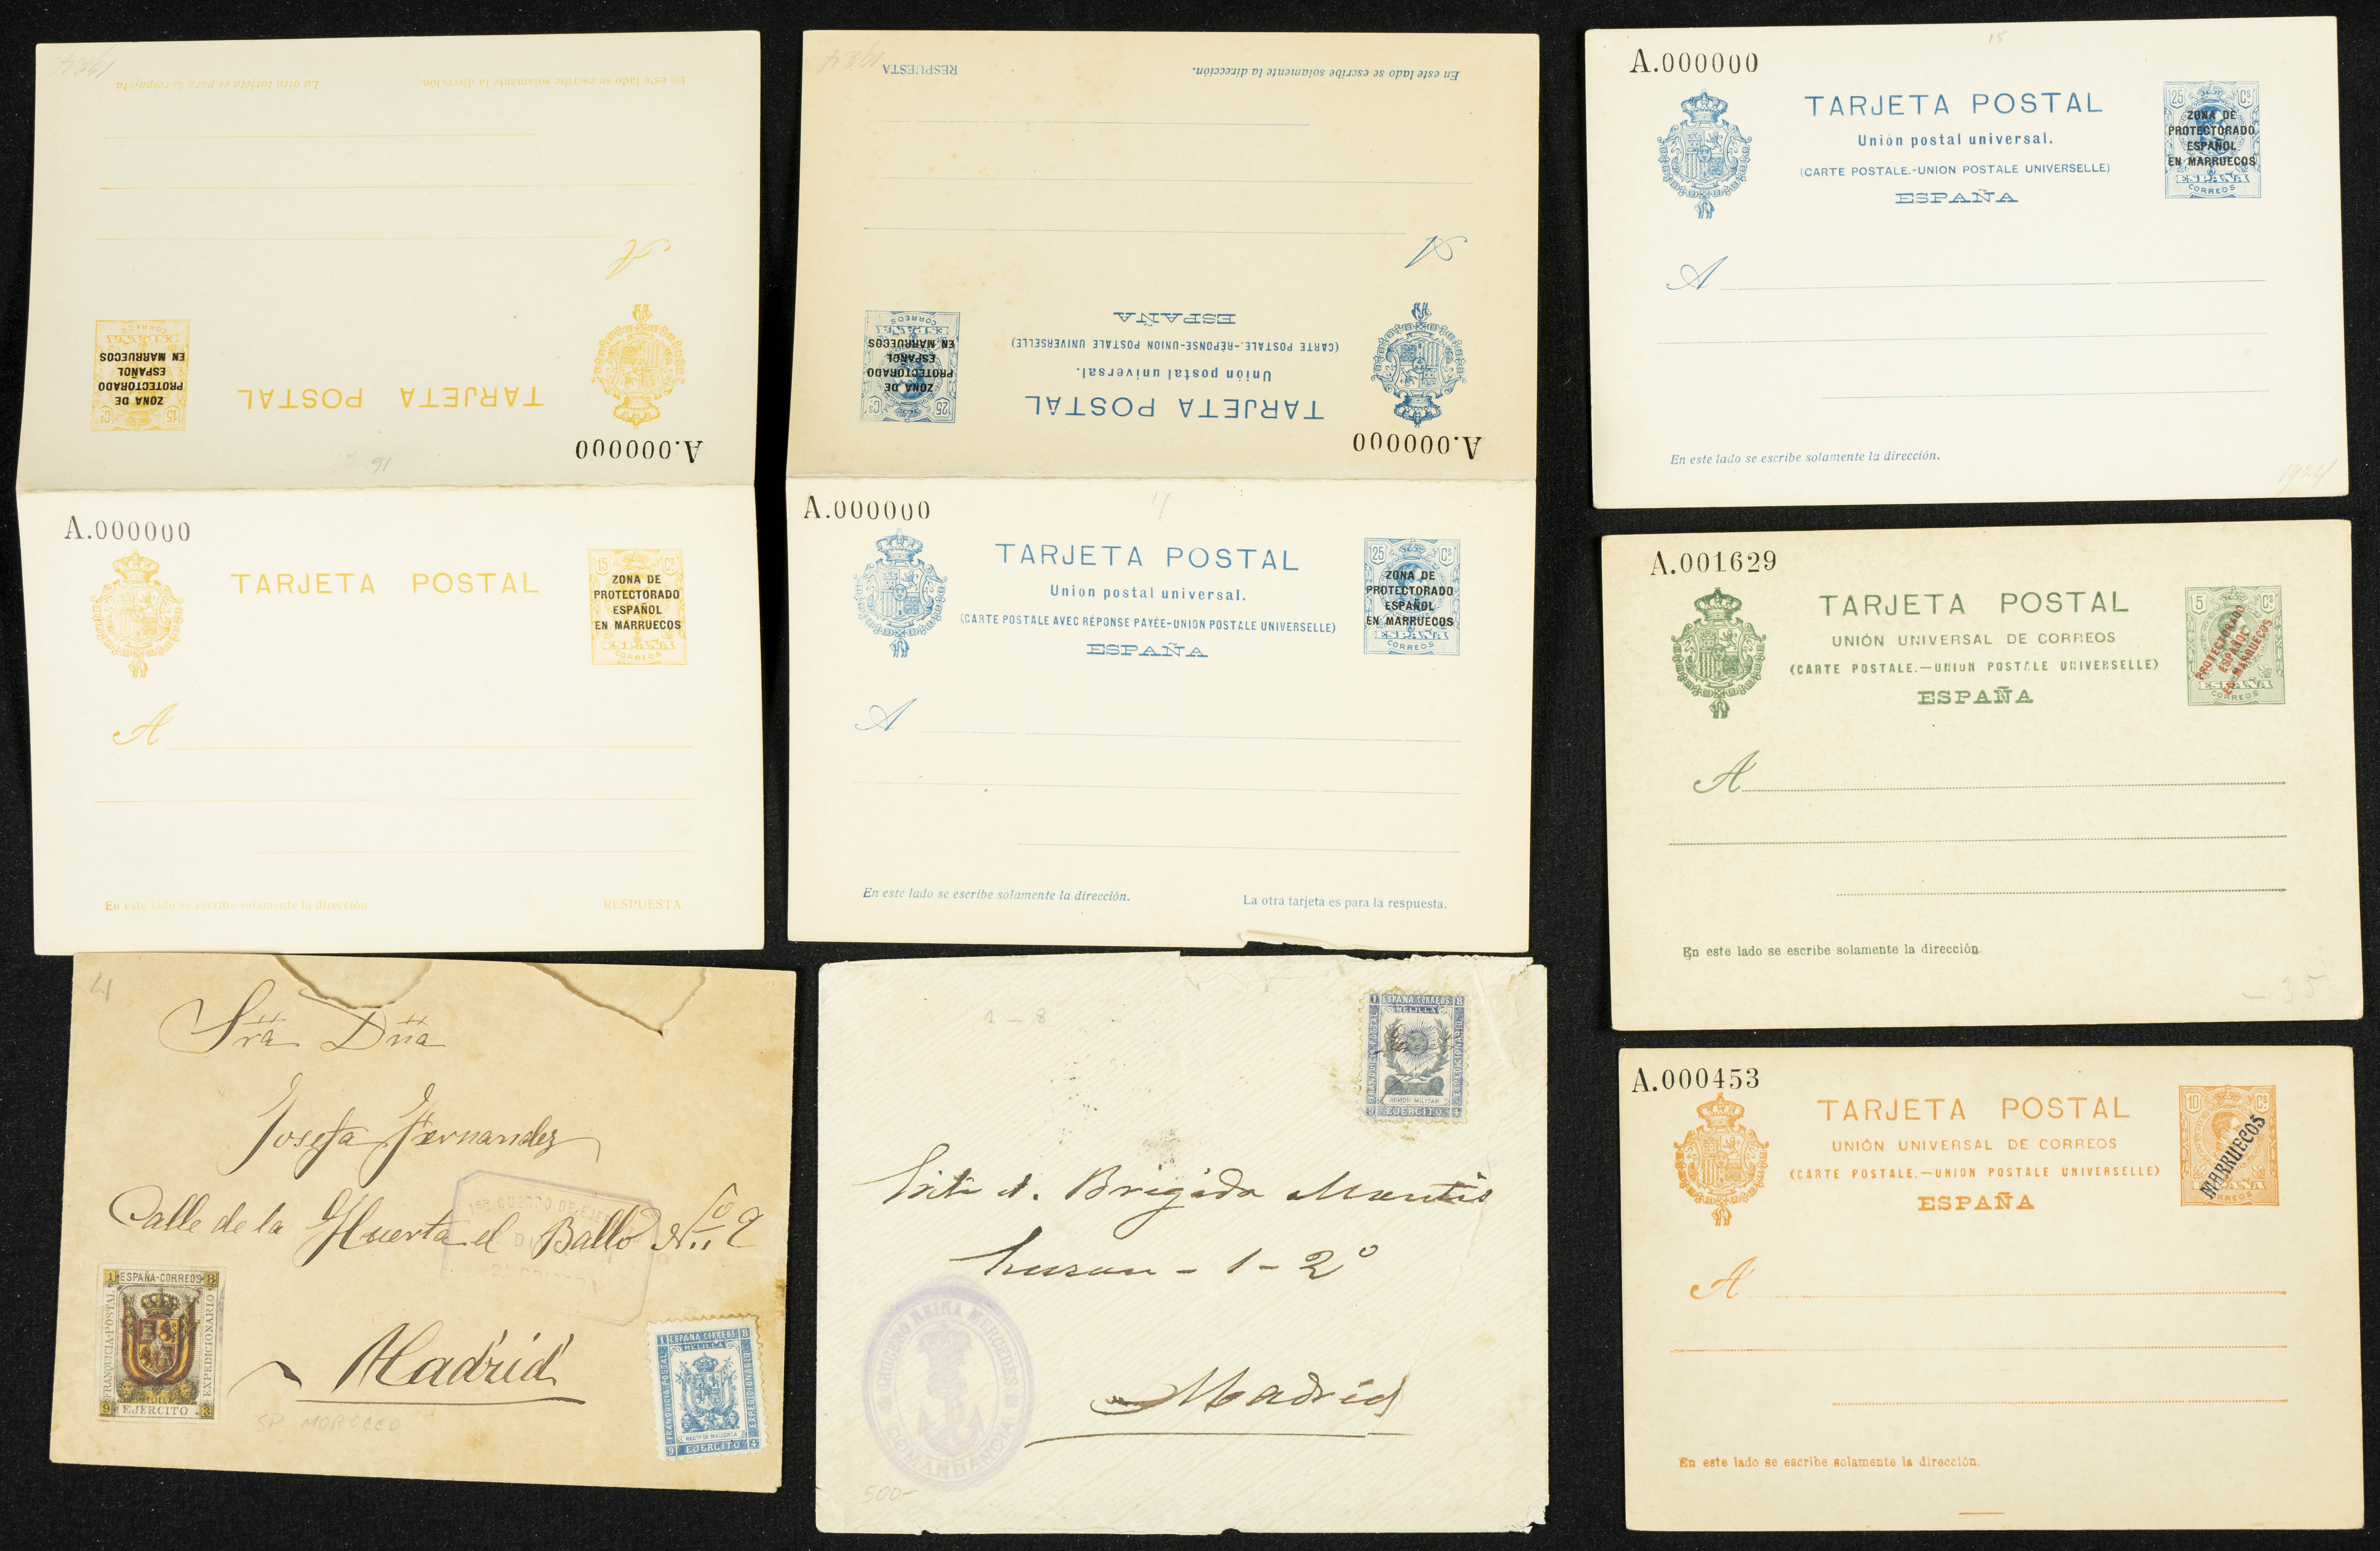 1924
La otra tarjeta es para la respuesta.
En este lado se escribe solamente la dirección.
A
EN MARRUECOS
ESPAÑOL
PROTECTORADO
ZONA DE
15 Cs
CORREOS
TARJETA POSTAL
A.000000
16
A.000000
TARJETA POSTAL
15 Cs
ZONA DE
PROTECTORADO
ESPAÑOL
EN MARRUECOS
CORREOS
A
En este lado se escribe solamente la dirección.
RESPUESTA
1924
RESPUESTA
En este lado se escribe solamente la dirección.
A
ESPAÑA
(CARTE POSTALE.-RÉPONSE-UNION POSTALE UNIVERSELLE)
Unión postal universal.
TARJETA POSTAL
25 Cs
ZONA DE
PROTECTORADO
ESPAÑOL
EN MARRUECOS
ESPAÑA
CORREOS
A.000000
A.000000
17
TARJETA POSTAL
Union postal universal.
(CARTE POSTALE AVEC RÉPONSE PAYÉE-UNION POSTALE UNIVERSELLE)
ESPAÑA
25 Cs
ZONA DE
PROTECTORADO
ESPAÑOL
EN MARRUECOS
ESPAÑA
CORREOS
A
En este lado se escribe solamente la dirección.
La otra tarjeta es para la respuesta.
A.000000
15
TARJETA POSTAL
Unión postal universal.
(CARTE POSTALE.-UNION POSTALE UNIVERSELLE)
ESPAÑA
25 Cs
ZONA DE
PROTECTORADO
ESPAÑOL
EN MARRUECOS
ESPAÑA
CORREOS
A
En este lado se escribe solamente la dirección.
1924
A.001629
TARJETA POSTAL
UNIÓN UNIVERSAL DE CORREOS
(CARTE POSTALE.—UNION POSTALE UNIVERSELLE)
ESPAÑA
5 Cs
PROTECTORADO
ESPAÑOL
EN MARRUECOS
ESPAÑA
CORREOS
A
En este lado se escribe solamente la dirección.
- 35
A.000453
TARJETA POSTAL
UNIÓN UNIVERSAL DE CORREOS
(CARTE POSTALE.—UNION POSTALE UNIVERSELLE)
ESPAÑA
10 Cs
MARRUECOS
CORREOS
A
En este lado se escribe solamente la dirección.
4
Sra Dña
Josefa Fernandez
Calle de la Huerta el Ballo Nº 2
Madrid
1ER CUERPO DE EJER
SP. MOROCCO
1 ESPAÑA-CORREOS 8
FRANQUICIA-POSTAL
EXPEDICIONARIO
MELILLA
9 EJÉRCITO 3
1 ESPAÑA CORREOS 8
MELILLA
FRANQUICIA POSTAL
EXPEDICIONARIO
REGTO DE MALLORCA
9 EJERCITO 4
1 - 8
1 ESPAÑA CORREOS 8
MELILLA
FRANQUICIA POSTAL
EXPEDICIONARIO
ADMON MILITAR
9 EJERCITO 4
Brigida
1 - 2º
Madrid
CRUCERO REINA MERCEDES
COMANDANCIA
500-